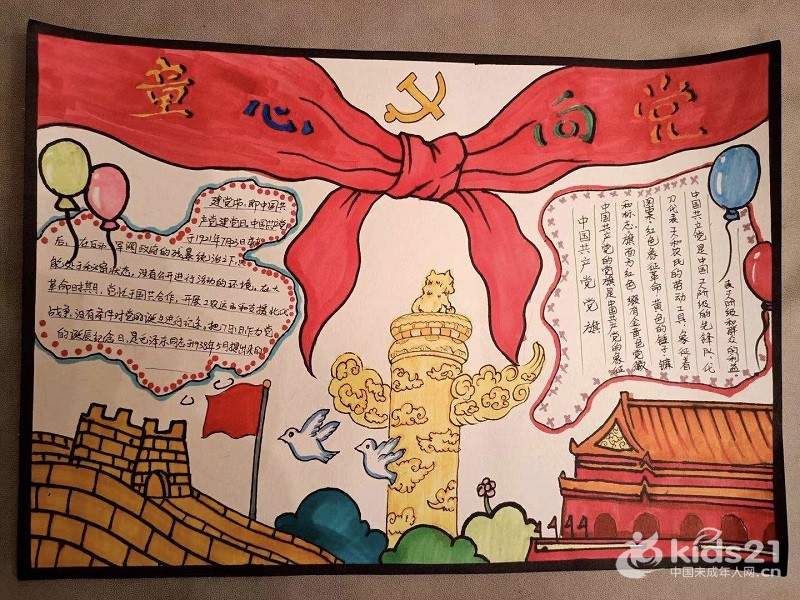 童心向党
建党节,即中国共
产党建党日。中国共产党
于1921年7月23日成立
后,在反动军阀政府的残暴统治下,只
能处于秘密状态,没有公开进行活动的环境。在大
革命时期,当忙于国共合作、开展工农运动和支援北伐
战争,没有条件对党的诞生进行纪念。把7月1日作为党
的诞辰纪念日,是毛泽东同志于1938年5月提出来的
中国共产党党旗
中国共产党的党旗是中国共产党的象征
和标志,旗面为红色,缀有金黄色党徽
图案。红色象征革命,黄色的锤子、镰
刀代表工人和农民的劳动工具,象征着
中国共产党是中国工人阶级的先锋队,代
表工人阶级和群众的利益。
kids21
中国未成年人网.cn